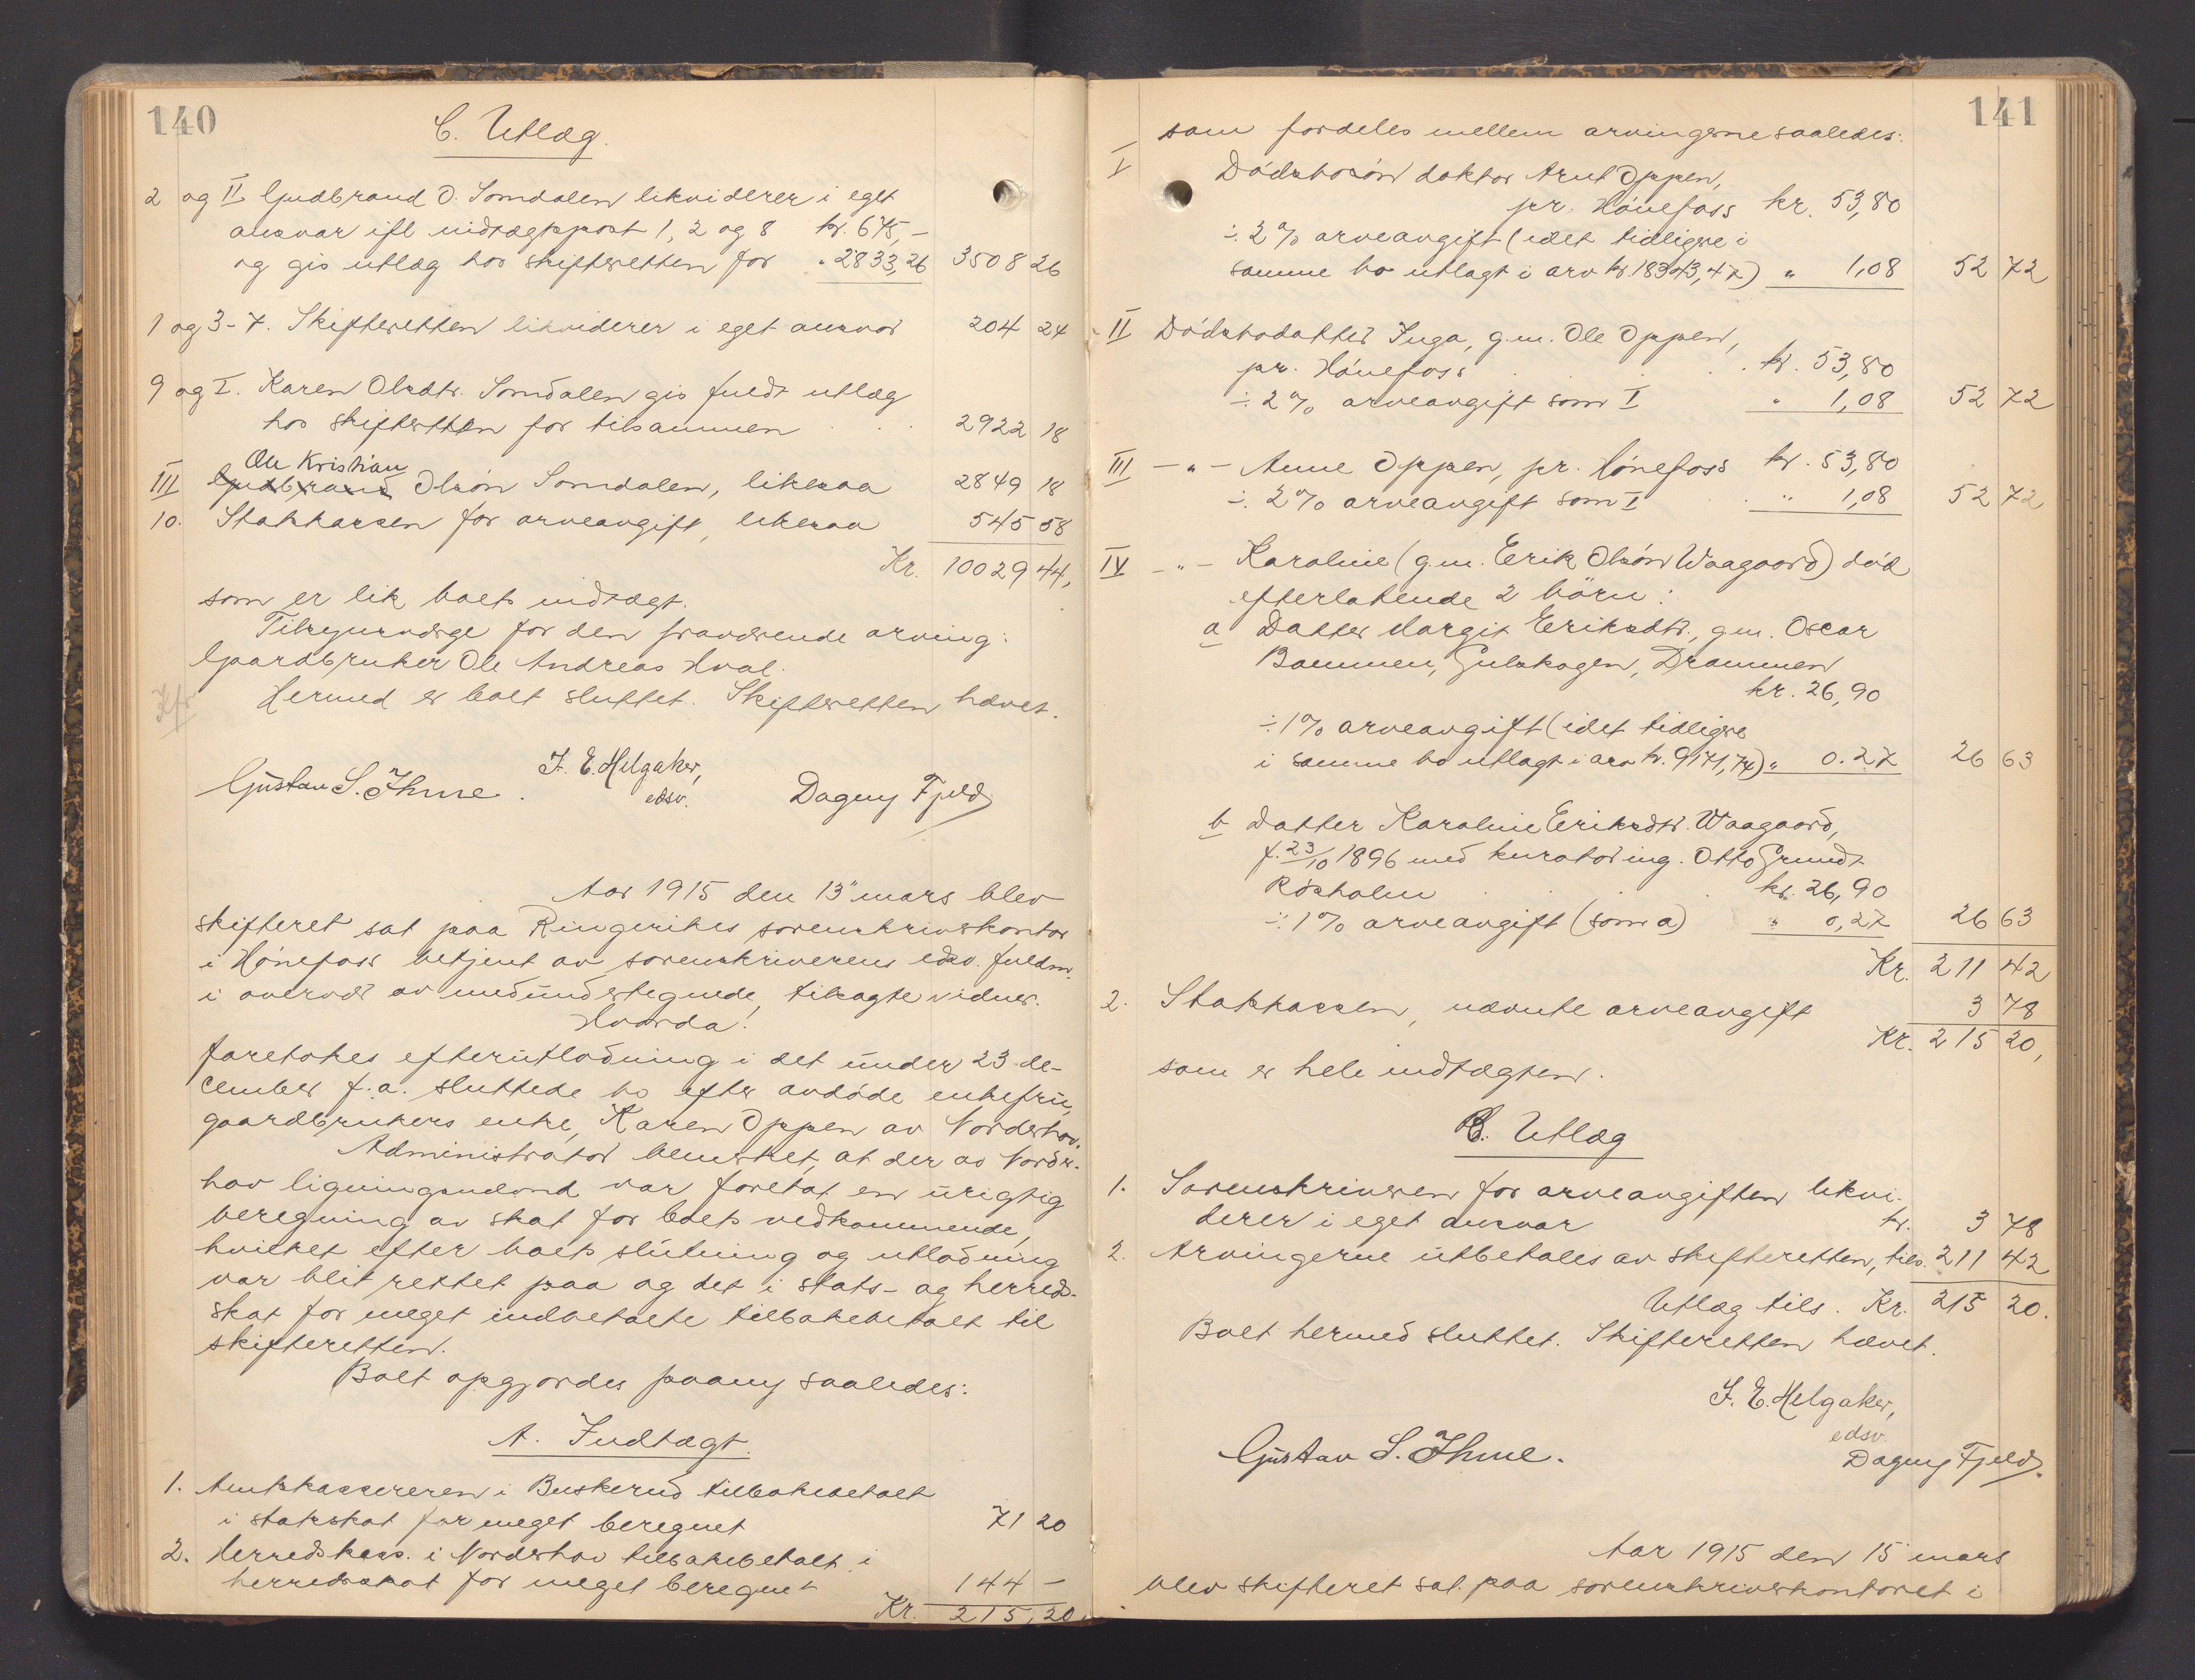 140
C. Utlæg.
2 og II Gudbrand O. Somdalen likviderer i eget
ansvar ifl indtægtspost 1, 2 og 8 kr. 675,-
og gis utlæg hos skifteretten for " 2833,26 3508 26
1 og 3-7. Skifteretten likviderer i eget ansvar 204 24
9 og I. Karen Olsdtr. Somdalen gis fuldt utlæg
hos skifteretten for tilsammen . . . 2922 18
Ole Kristian
III Gudbrand Olsøn Somdalen, likesaa 2849 18
10. Statskassen for arveavgift, likesaa 545 58
Kr. 10029 44,
som er lik boets indtægt.
Tilsynsværge for den fraværende arving:
Gaardbruker Ole Andreas Hval.
Kfr Hermed er boet sluttet. Skifteretten hævet.
F. E. Helgaker,
edsv.
Gustav S. Ihme. Dagny Fjeld
Aar 1915 den 13" mars blev
skifteret sat paa Ringerikes sorenskriverkontor
i Hønefoss betjent av sorenskriverens edsv. fuldm.
i overvær av medundertegnede, tilsagte vidner.
Hvorda:
foretokes efterutlodning i det under 23 de-
cember f.a. sluttede bo efter avdøde enkefru,
gaardbrukers enke, Karen Oppen av Norderhov.
Administrator bemerket, at der av Norder-
hov ligningsnevnd var foretat en urigtig
beregning av skat for boets vedkommende,
hvilket efter boets slutning og utlodning
var blit rettet paa og det i stats- og herreds-
skat for meget indbetalte tilbakebetalt til
skifteretten.
Boet opgjordes paany saaledes:
A. Indtægt.
1. Amtskassereren i Buskerud tilbakebetalt
i statsskat for meget beregnet 71 20
2. Herredskass. i Norderhov tilbakebetalt i
herredsskat for meget beregnet 144 -
Kr. 215,20,
141
som fordeles mellem arvingerne saaledes:
I Dødsbosøn doktor Arnt Oppen,
pr. Hønefoss kr. 53,80
÷ 2% arveavgift (idet tidligere i
samme bo utlagt i arv kr. 18343,47) " 1,08 52 72
II Dødsbodatter Inga, g.m. Ole Oppen,
pr. Hønefoss . . . kr. 53,80
÷ 2% arveavgift som I " 1,08 52 72
III - " - Anne Oppen, pr. Hønefoss kr. 53,80
÷ 2% arveavgift som I . " 1,08 52 72
IV - " - Karoline (g.m. Erik Olsøn Waagaard) død
efterlatende 2 børn:
a Datter Margit Eriksdtr., g.m. Oscar
Bammen, Gulskogen, Drammen
kr. 26,90
÷ 1% arveavgift (idet tidligere
i samme bo utlagt i arv kr. 9171,74) " 0.27 26 63
b Datter Karoline Eriksdtr. Waagaard,
f. 23/10 1896 med kurator ing. Otto Grundt
Røsholm . . . kr. 26,90
÷ 1% arveavgift (som a) " 0,27 26 63
Kr. 211 42
2. Statskassen, nævnte arveavgift 3 78
Kr. 215 20,
som er hele indtægten.
B. Utlæg
1. Sorenskriveren for arveavgiften likvi-
derer i eget ansvar kr. 3 78
2. Arvingerne utbetales av skifteretten, tils. 211 42
Utlæg tils. Kr. 215 20.
Boet hermed sluttet. Skifteretten hævet.
F. E. Helgaker,
edsv.
Gustav S. Ihme. Dagny Fjeld.
Aar 1915 den 15 mars
blev skifteret sat paa sorenskriverkontoret i